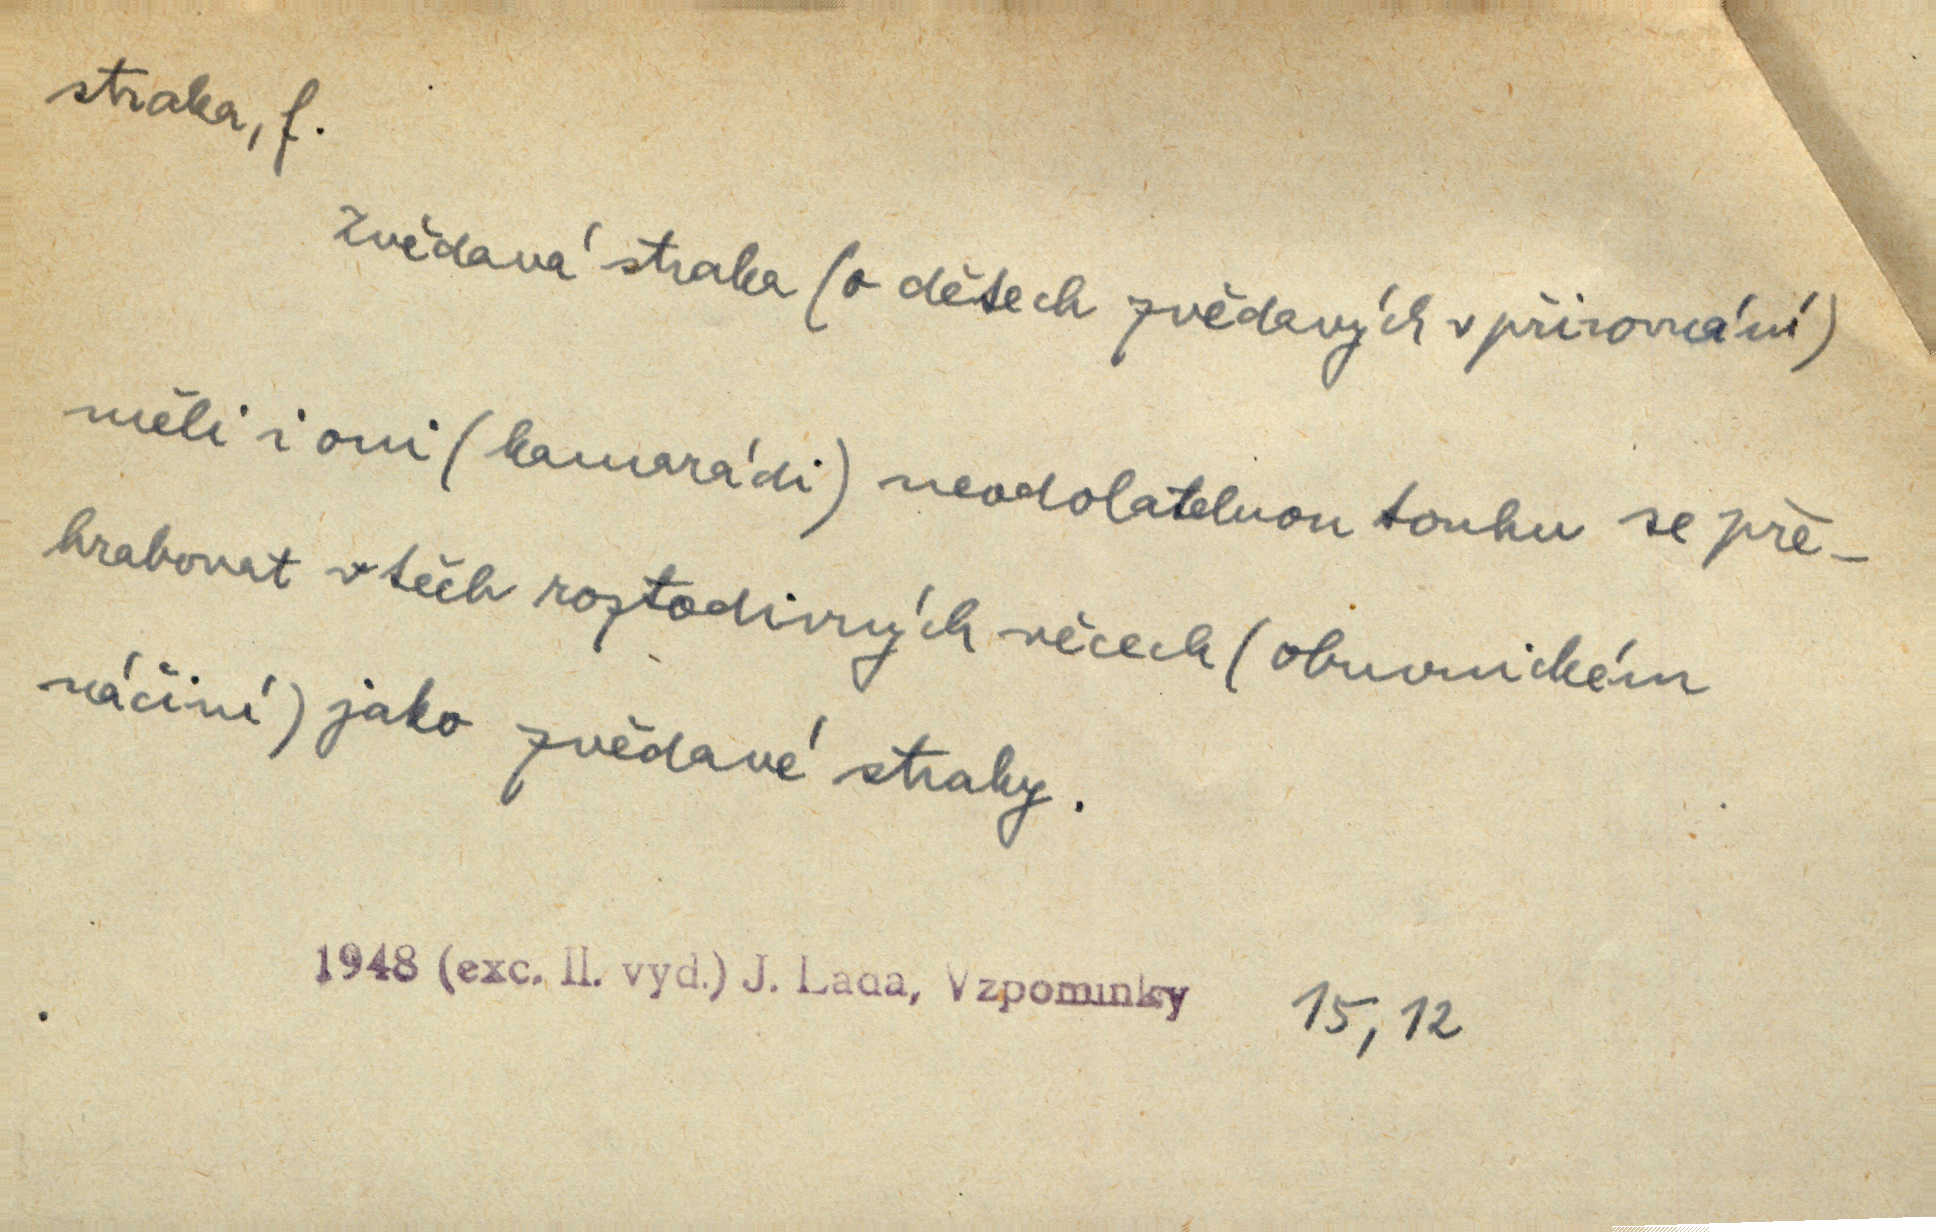 straka, f.
zvědavá straka (o dětech zvědavých v přirovnání)
měli i oni (kamarádi) neodolatelnou touhu se pře-
hrabovat v těch roztodivných věcech (obuvnickém
náčiní) jako zvědavé straky.
1948 (exc. II. vyd.) J. Lada, Vzpomínky 15, 12